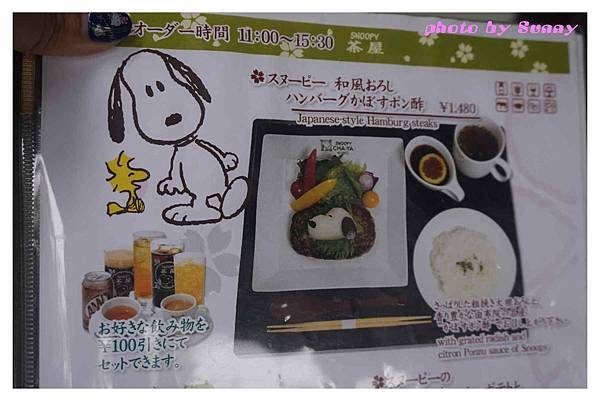 photo by Sunny
オーダー時間 11:00～15:30
SNOOPY
茶屋
スヌーピー 和風おろし
ハンバーグかぼすポン酢 ¥1,480
Japanese-style Hamburg steaks
SNOOPY
CHAYA
お好きな飲み物を
¥100引きにて
セットできます。
さっぱりした粗挽き大根おろしと
with grated radish and
citron Ponzu sauce of Snoopy.
スヌーピーの